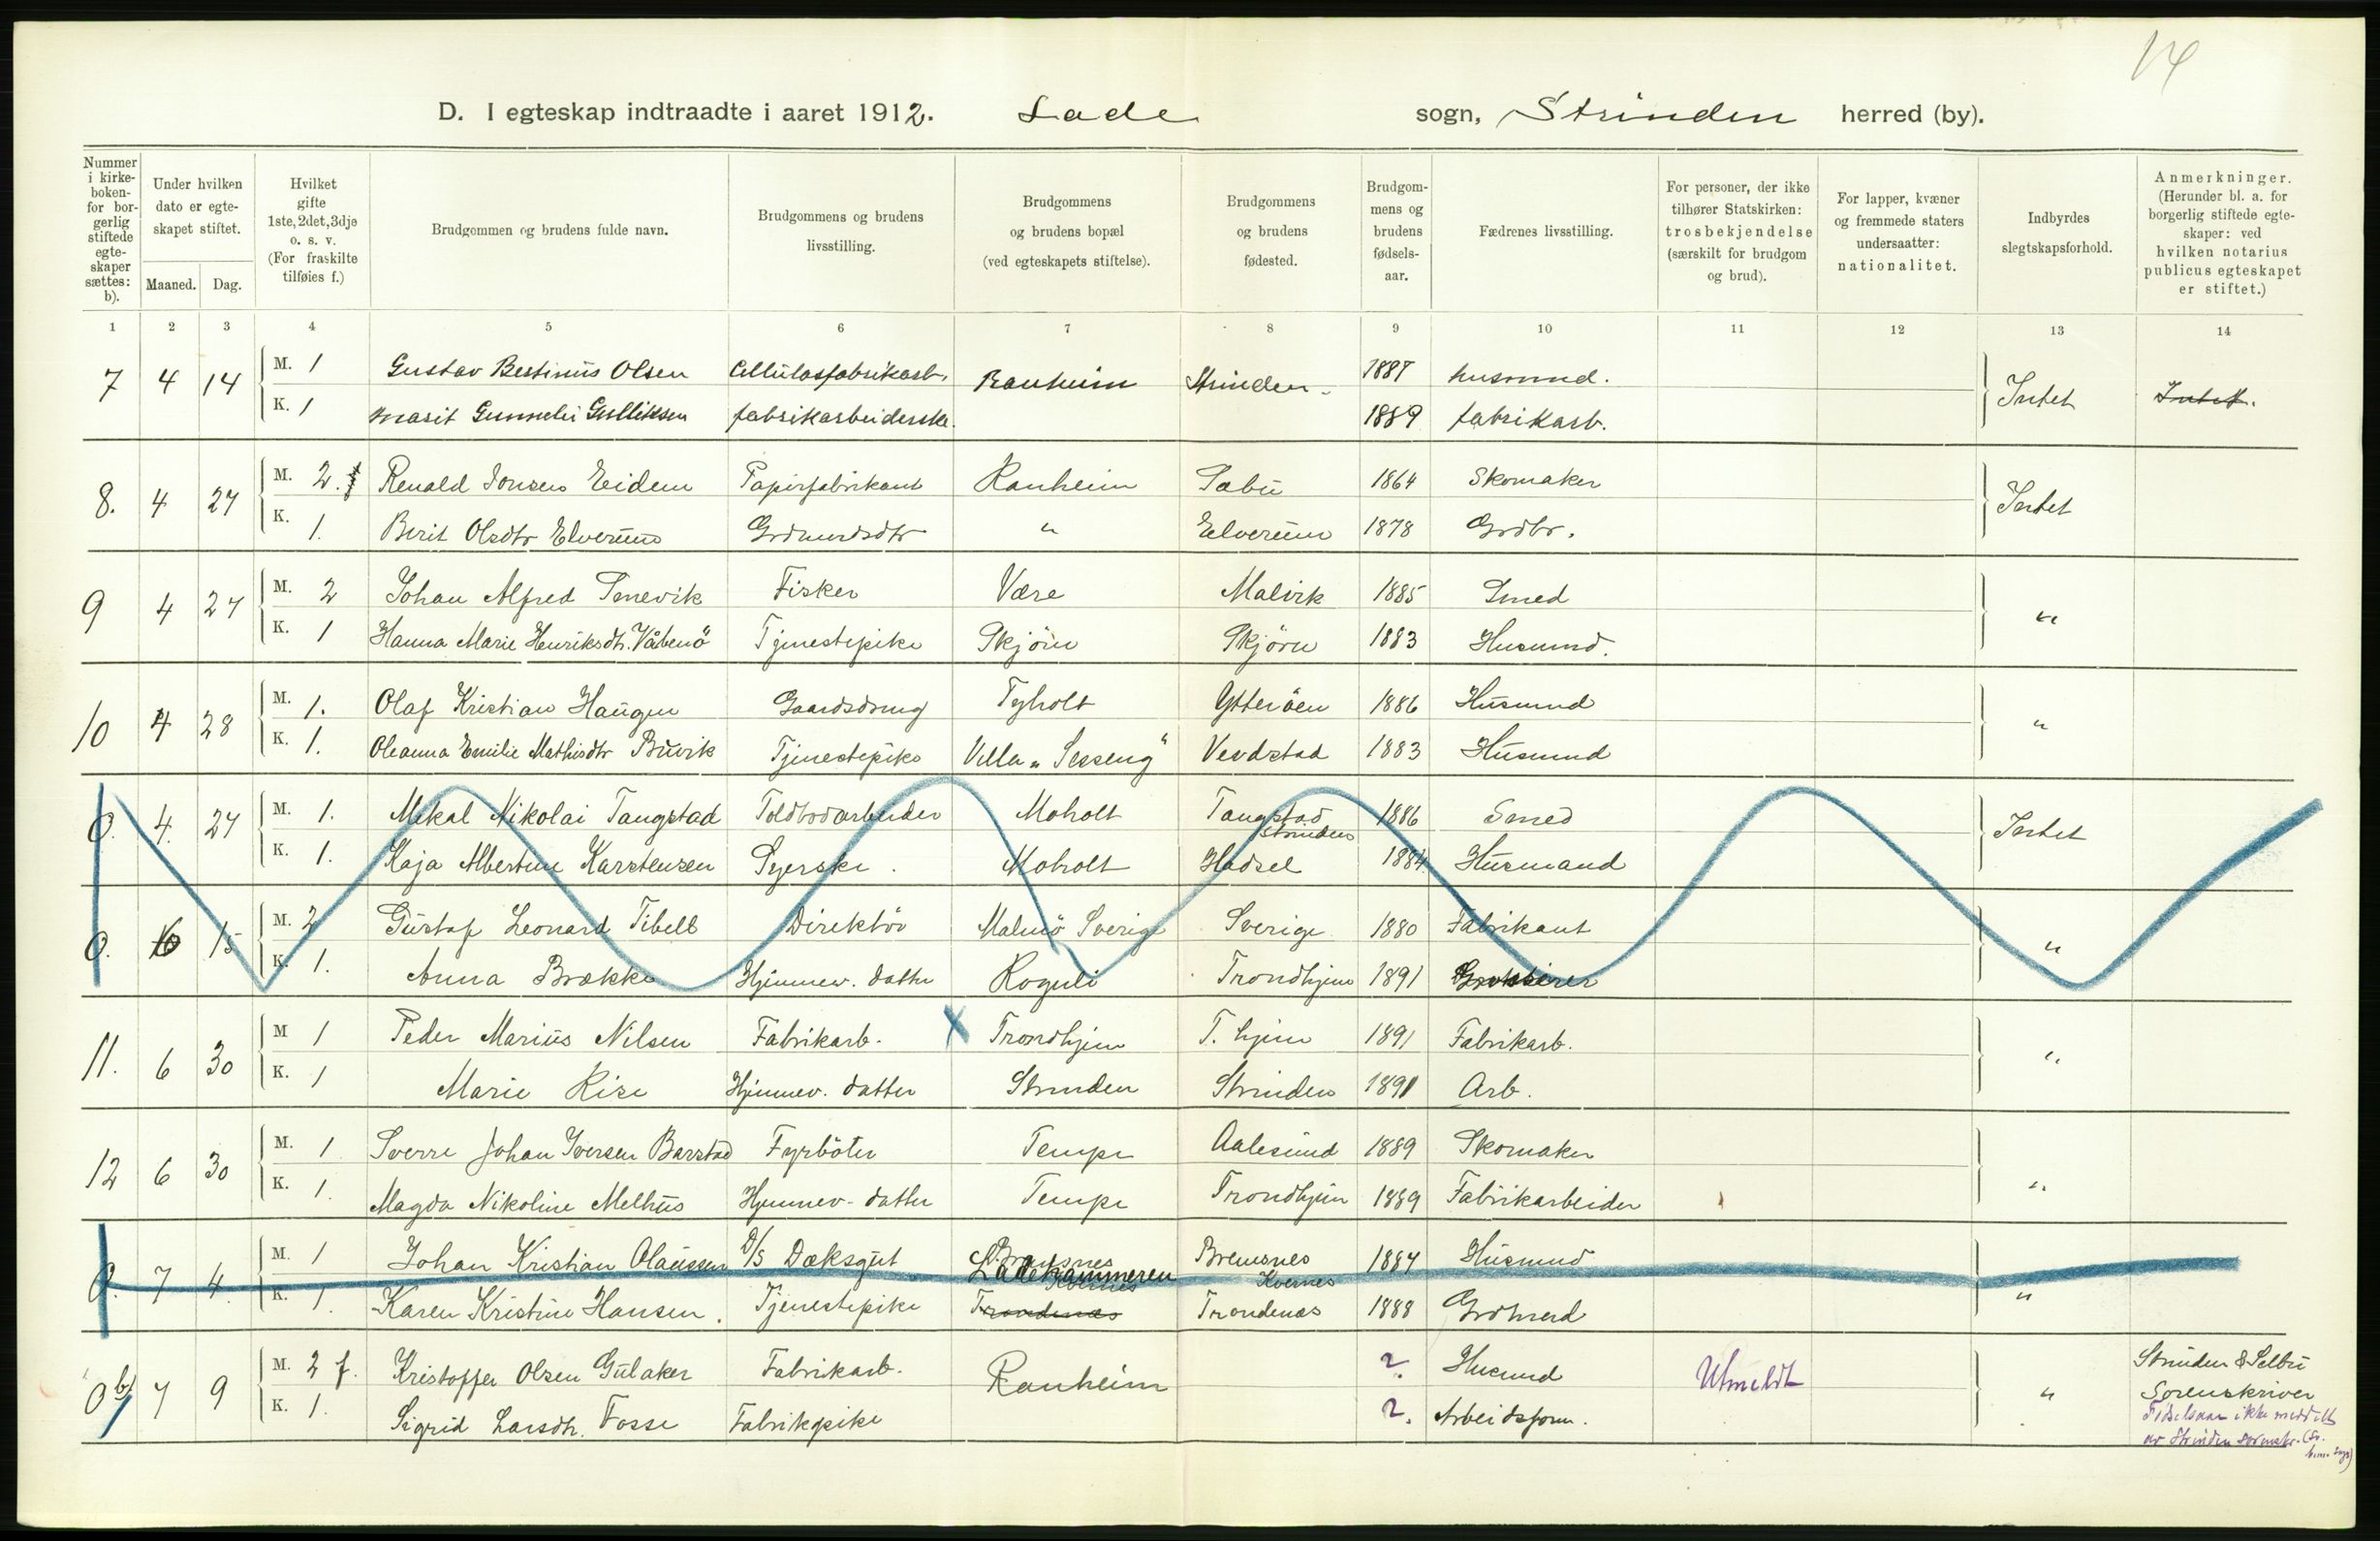 14
D. I egteskap indtraadte i aaret 1912. Lade sogn, Strinden herred (by).
Nummer i kirkeboken- for borgerlig stiftede egteskaper sættes: b).
Under hvilken dato er egteskapet stiftet.
Maaned. Dag.
Hvilket gifte 1ste, 2det, 3dje o. s. v. (For fraskilte tilføies f.)
Brudgommen og brudens fulde navn.
Brudgommens og brudens livsstilling.
Brudgommens og brudens bopæl (ved egteskapets stiftelse).
Brudgommens og brudens fødested.
Brudgommens og brudens fødselsaar.
Fædrenes livsstilling.
For personer, der ikke tilhører Statskirken: trosbekjendelse (særskilt for brudgom og brud).
For lapper, kvæner og fremmede staters undersaatter: nationalitet.
Indbyrdes slegtskapsforhold.
Anmerkninger. (Herunder bl. a. for borgerlig stiftede egteskaper: ved hvilken notarius publicus egteskapet er stiftet.)
1 2 3 4 5 6 7 8 9 10 11 12 13 14
7 4 14 M. 1 Gustav Bestinus Olsen Cellulosfabrikarb. Ranheim Strinden 1887 husmnd. Intet Intet.
K. 1 Marit Gunnelei Gulliksen fabrikarbeiderske. 1889 fabrikarb.
8. 4 27 M. 2. f Renald Jonsen Eidem Papirfabrikant Ranheim Selbu 1864 Skomaker Intet
K. 1. Berit Olsdtr Elverum Grdmndsdtr " Elverum 1878 Grdbr.
9 4 27 M. 2 Johan Alfred Senevik Fisker Være Malvik 1885 Smed "
K. 1 Hanna Marie Henriksdtr. Våbenö Tjenestepike Skjörn Skjörn 1883 Husmnd.
10 4 28 M. 1. Olaf Kristian Haugen Gaardsdreng Tyholt Ytteröen 1886 Husmnd "
K. 1. Oleanna Emilie Mathisdtr Buvik Tjenestepike Villa „Sesseng" Vevdstad 1883 Husmnd
0. 4. 27 M. 1. Mekal Nikolai Tangstad Toldbodarbeider Moholt Tangstad Strinden 1886 Smed Intet
K. 1. Kaja Albertine Karstensen Syerske. Moholt Hadsel 1884. Husmand
0. 6 15 M. 2 Gustaf Leonard Tibell Direktör Malmö Sverige Sverige 1880 Fabrikant "
K. 1. Anna Brække Hjemmev. datter Roguli Trondhjem 1891 Grosserer
11. 6 30 M 1 Peder Marius Nilsen Fabrikarb. X Trondhjem T. hjem 1891 Fabrikarb. "
K. 1 Marie Rise Hjemmev. datter Strinden Strinden 1891 Arb.
12 6 30 M. 1 Sverre Johan Iversen Barstad Fyrböter Tempe Aalesund 1889 Skomaker "
K. 1. Magda Nikoline Melhus Hjemmev. datter Tempe Trondhjem 1889 Fabrikarbeider
0. 7 4. M. 1 Johan Kristian Olaussen D/S Dæksgut Bremsnes Kvernes Ladehammeren Bremsnes Kvernes 1887 Husmnd "
K. 1. Karen Kristine Hansen. Tjenestepike Trondenæs Trondenæs 1888 Grdmnd
0 b) 7 9 M. 2 f. Kristoffer Olsen Gulaker Fabrikarb. Ranheim ? Husmnd Utmeldt " Strinden & Selbu Sorenskriver
K. 1. Sigrid Larsdtr. Fosse Fabrikpike ?. Arbeidsform. Födselsaar ikke meddelt
av Strinden sorenskr.